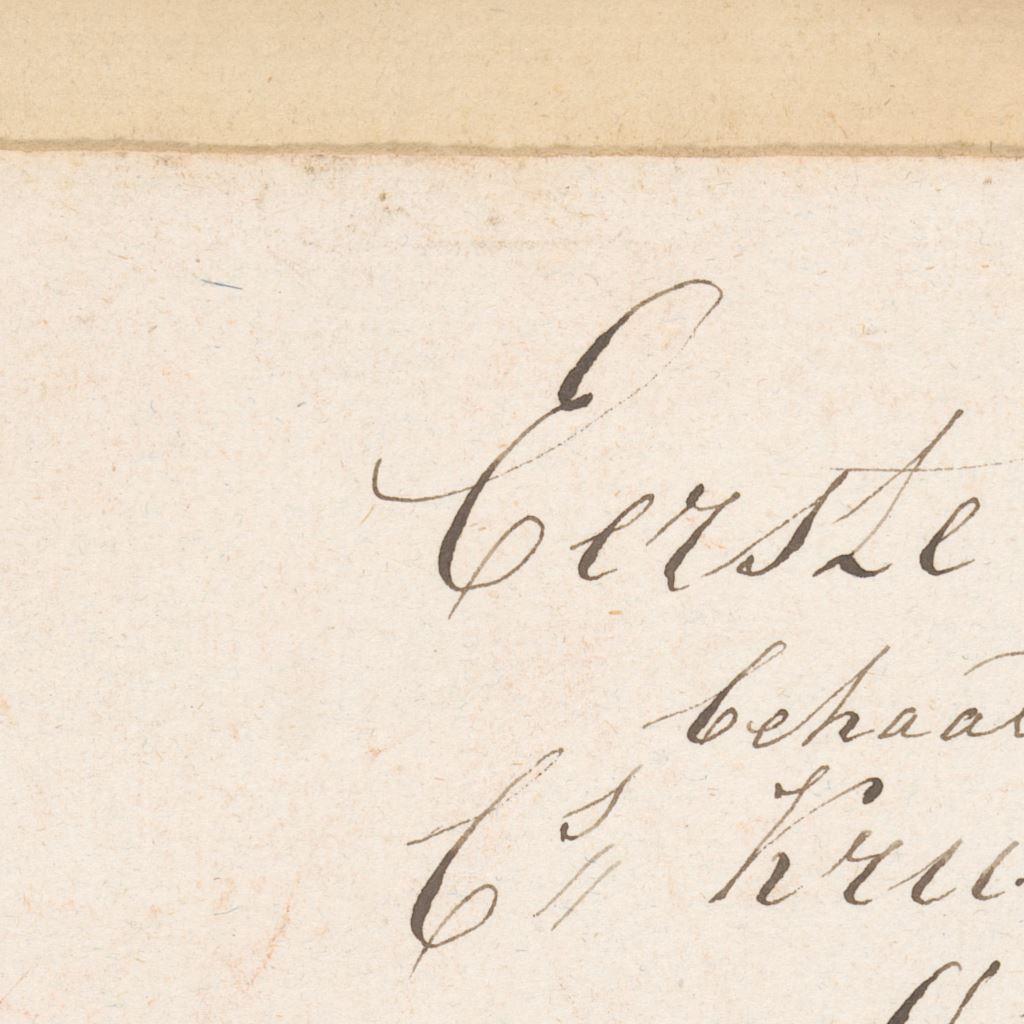 Eerste
behaal
Cs Kru